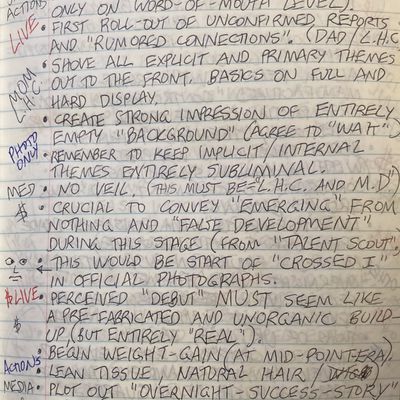 ACTIONS ONLY ON WORD-OF-MOUTH LEVEL).
LIVE • FIRST ROLL-OUT OF UNCONFIRMED REPORTS
AND "RUMORED CONNECTIONS". (DAD/L.H.C.
MOM L.H.C. • SHOVE ALL EXPLICIT AND PRIMARY THEMES
OUT TO THE FRONT. BASICS ON FULL AND
HARD DISPLAY.
• CREATE STRONG IMPRESSION OF ENTIRELY
EMPTY "BACKGROUND" (AGREE TO "WAIT")
PHOTO ONLY • REMEMBER TO KEEP IMPLICIT/INTERNAL
THEMES ENTIRELY SUBLIMINAL.
MED • NO VEIL. (THIS MUST BE = L.H.C. AND M.D")
$ • CRUCIAL TO CONVEY "EMERGING" FROM
NOTHING AND "FALSE DEVELOPMENT"
DURING THIS STAGE (FROM "TALENT SCOUT".
• THIS WOULD BE START OF "CROSSED I"
← IN OFFICIAL PHOTOGRAPHS.
$LIVE • PERCEIVED "DEBUT" MUST SEEM LIKE
$ A PRE-FABRICATED AND UNORGANIC BUILD-
UP, (BUT ENTIRELY "REAL").
ACTIONS • BEGIN WEIGHT-GAIN (AT MID-POINT-ERA/
• LEAN TISSUE, NATURAL HAIR /
MEDIA • PLOT OUT "OVERNIGHT-SUCCESS-STORY"